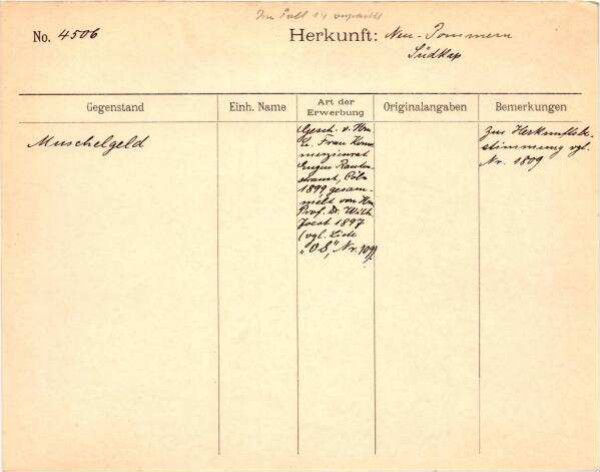 No. 4506
Herkunft: Neu-Pommern
Südkap
Gegenstand
Einh. Name
Art der Erwerbung
Originalangaben
Bemerkungen
Muschelgeld
Gesch. v. Hrn
u. Frau Kom
merzienrat
Eugen Rauten-
strauch, Cöln
1899, gesam-
melt von Hrn
Prof. Dr. Wilh.
Joest 1897
(vgl. Liste
Zur Herkunftsbe-
stimmung vgl.
Nr. 1809